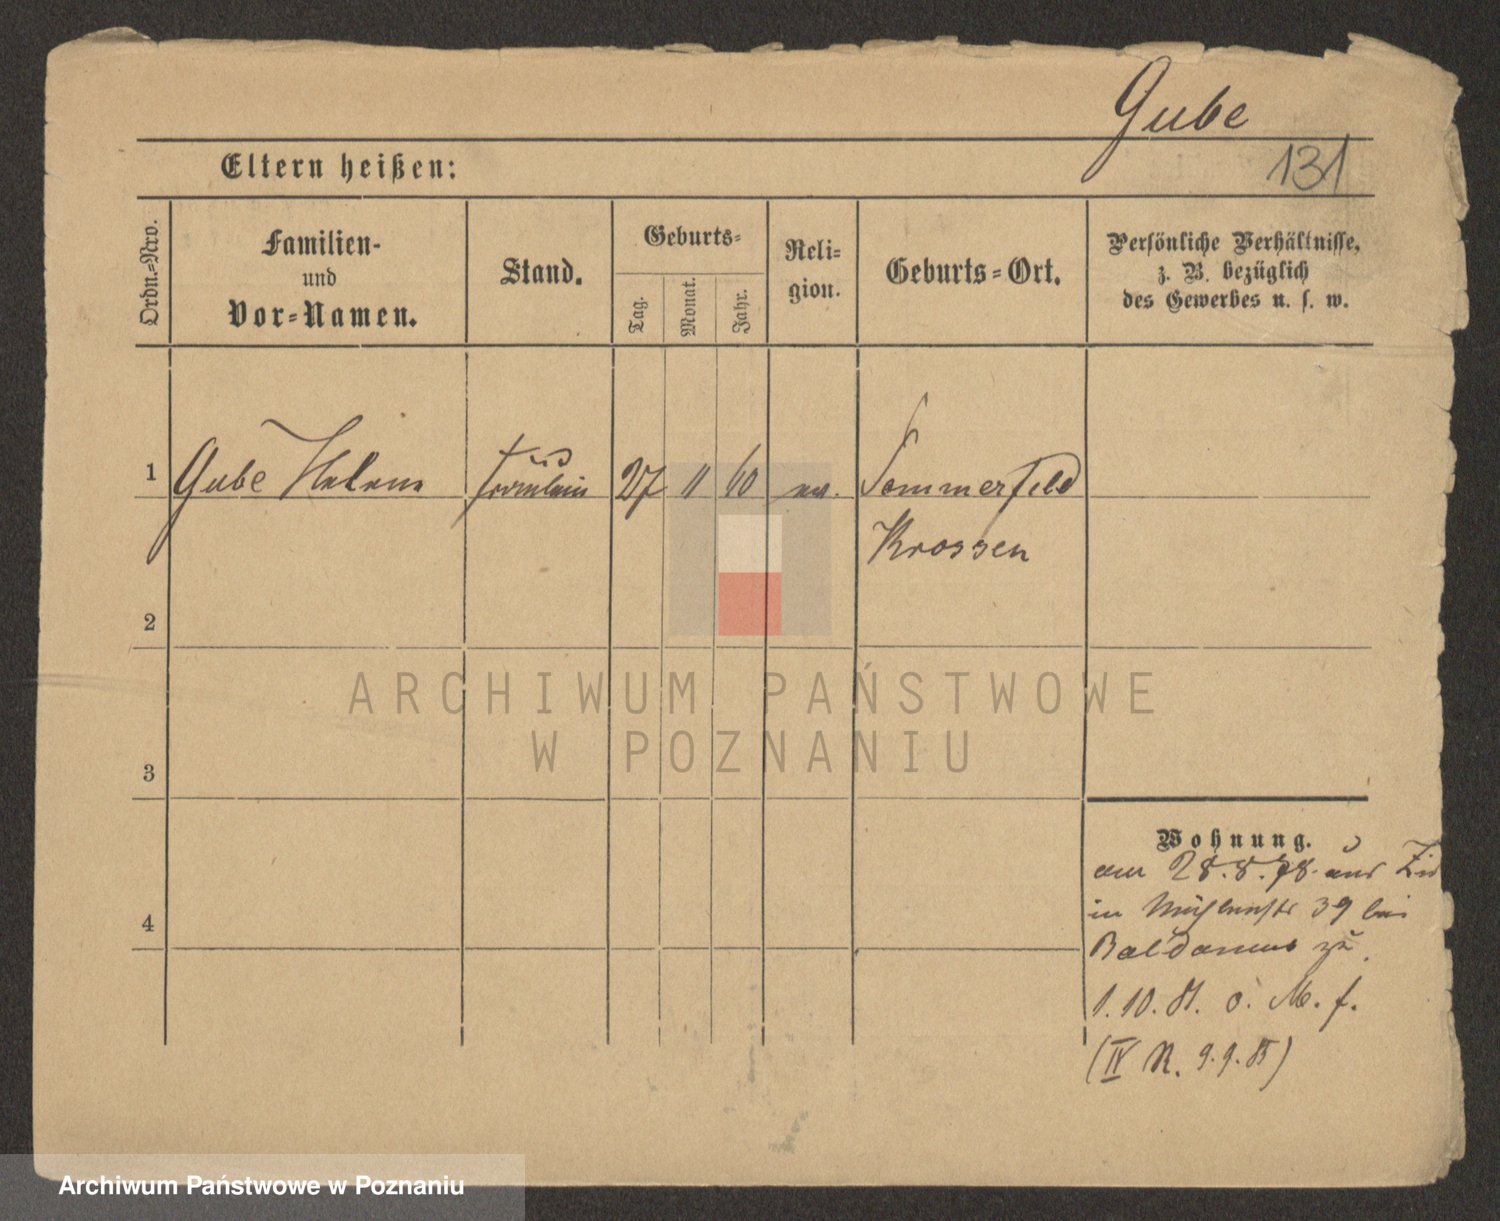 Gube
131
Eltern heißen:
Ordn.-Nro.
Familien-
und
Vor-Namen.
Stand.
Geburts-
Tag.
Monat.
Jahr.
Reli-
gion.
Geburts-Ort.
Persönliche Verhältnisse,
z. B. bezüglich
des Gewerbes u. s. w.
1 Gube Helene Fräulein 27 11 60 ev. Sommerfeld
Krossen
2
3
4
ARCHIWUM PAŃSTWOWE
W POZNANIU
Wohnung.
am 28.8.78 aus
in Mühlenstr 39 bei
zu
1.10.81. o. M. f.
(IV R. 9.9.85)
Archiwum Państwowe w Poznaniu